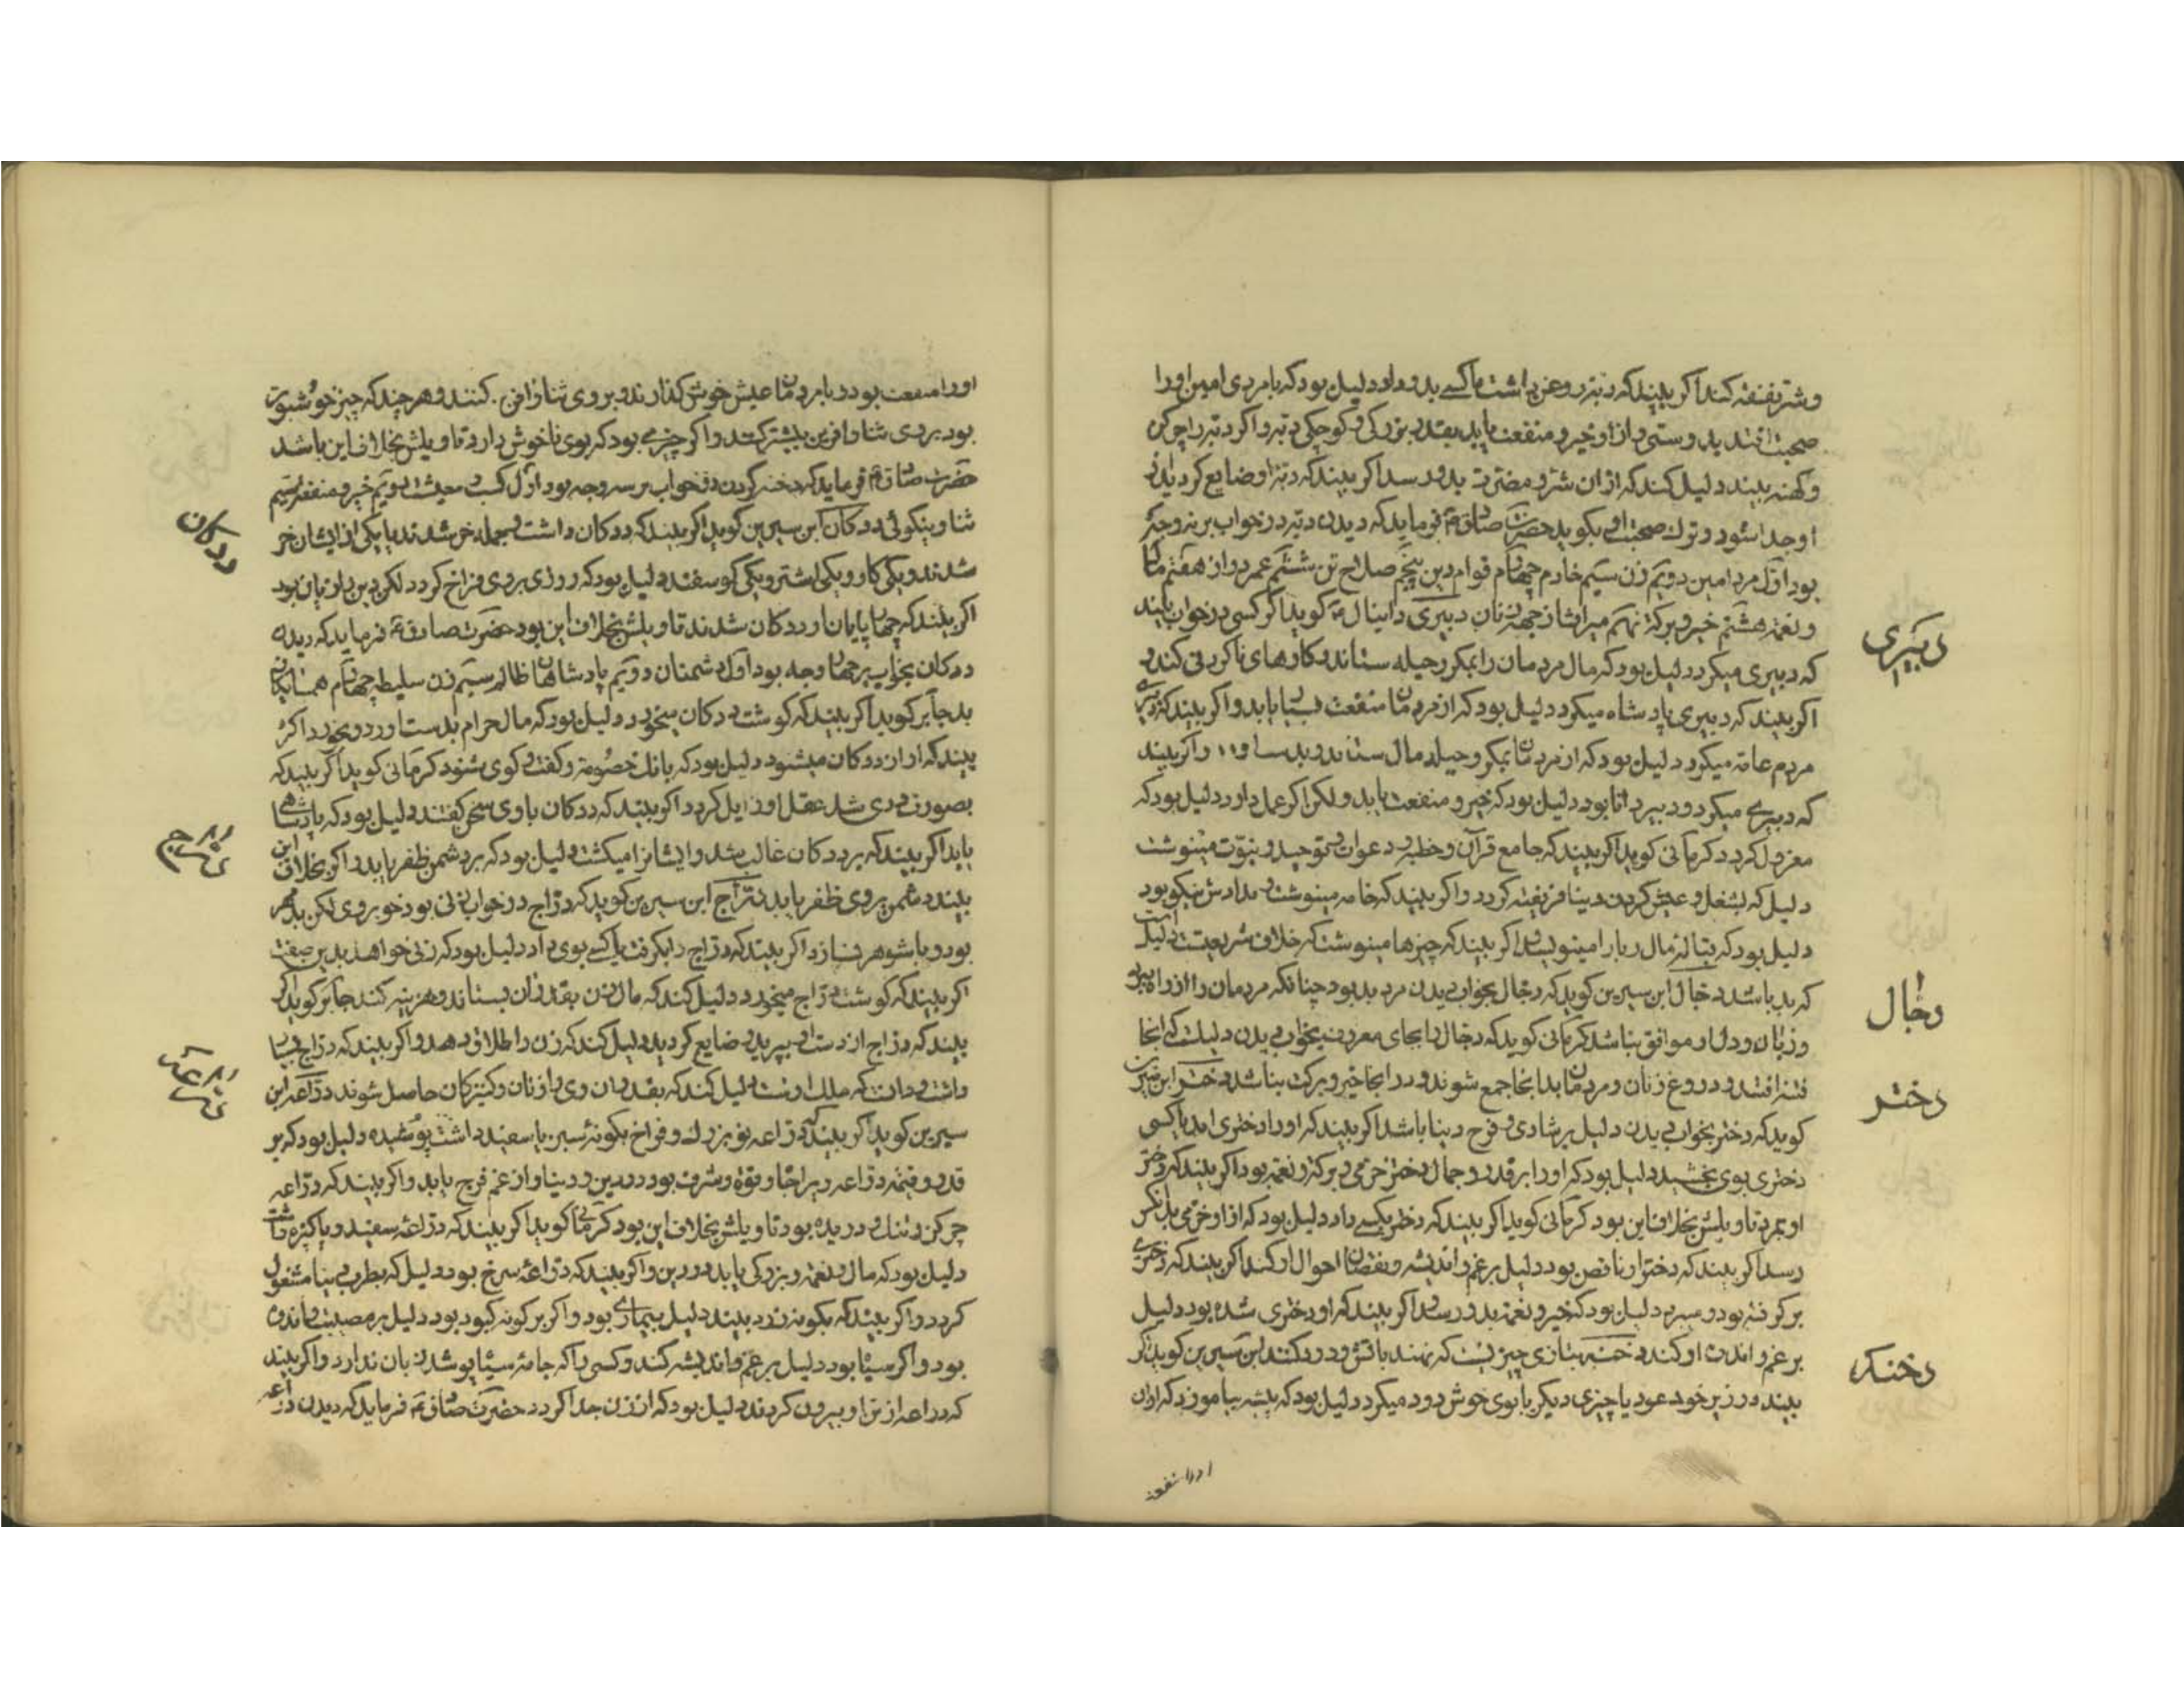 و شر نفقه کند اگر بیند که دبه روغن داشت یا کسی بدو داد دلیل بود که با مردی امین او را
صحبت افتد بدوستی و از او خیر و منفعت یابد بقدر بزرکی و کوچکی دبه و اکر دبه را چرکن
و کهنه بیند دلیل کند که از ان شر و مضرت بدو رسد اکر بیند که دبه او ضایع کردید از
او جدا شود و ترک صحبت او بکوید حضرت صادق فرماید که دیدن دبه در خواب بر نه وجه
بود اول مرد امین دویم زن سیم خادم چهارم قوام دین پنجم صلاح تن ششم عمر دراز هفتم مال
و نعمة هشتم خیر و برکة نهم میراث از جهة زنان دبیری دانیال کوید اکر کسی در خواب بیند
دبیری
که دبیری میکرد دلیل بود که مال مردمان را بمکر و حیله ستاند و کارهای ناکردنی کند و
اکر بیند که دبیری پادشاه میکرد دلیل بود که از مردمان منفعت یابد و اکر بیند که دبیری
مردم عامه میکرد دلیل بود که از مردمان بمکر و حیله مال ستاند و اکر بیند
که دبیری میکرد و دبیر دانا بود دلیل بود که خیر و منفعت یابد ولکن اکر عمل دارد دلیل بود که
معزول کردد کرمانی کوید اکر بیند که جامع قرآن و خطبه و دعوات و توحید و نبوت مینوشت
دلیل که بشغل و عیش کردن دینا فریفته کردد و اکر بیند که خامه مینوشت و مدادش نیکو بود
دلیل بود که مال ربا را مینویسد اکر بیند که چیزها مینوشت که خلاف شریعت است دلیل
که بد باشد دجال ابن سیرین کوید که دجال بخواب دیدن مرد بد بود چنانکه مردمان را از راه ببرد
دجال
و زبان و دل او موافق نباشد کرمانی کوید که دجال را بجای معروف بخواب دیدن دلیلست که انجا
فتنه افتد و دروغ زنان و مردمان بد انجا جمع شوند و در انجا خیر و برکت نباشد دختر ابن سیرین
دختر
کوید که دختر بخواب دیدن دلیل بر شادی و فرح دینا باشد اکر بیند که او را دختری امد یا کسی
دختری بوی بخشید دلیل بود که او را بر قدر و جمال دختر خرمی و برکة و نعمة بود اکر بیند که دختر
او بمرد تاویلش بخلاف این بود کرمانی کوید اکر بیند که دختر بکسی داد دلیل بود که از او خرمی بدانکس
رسد اکر بیند که دختر او ناقص بود دلیل بر غم و اندیشه و نقصان احوال او کند اکر بیند که دختری
بر کرفته بود و میبرد دلیل بود که خیر و نعمة بدو رسد و اکر بیند که او دختری شده بود دلیل
بر غم و اندوه او کند دخنه بتازی چیزیست که نهند باتش و دود کند ابن سیرین کوید اکر
دخنه
بیند در زیر خود عود یا چیزی دیکر با بوی خوش دود میکرد دلیل بود که پیشه بیاموزد که از ان
او را منفعة
او را منفعت بود و با مردمان عیش خوش کذارند و بر وی ثنا و افرین کنند و هر چند که چیز خوشبوی تر
بود بر وی ثنا و افرین بیشتر کنند و اکر چیزی بود که بوی ناخوش دارد تاویلش بخلاف این باشد
حضرت صادق فرماید که دخنه کردن در خواب بر سه وجه بود اول کسب معیشت دویم خیر و منفعة سیم
ثنا و نیکوئی ددکان ابن سیرین کوید اکر بیند که ددکان داشت و جمله خر شدند یا یکی از ایشان خر
ددکان
شدند و یکی کاو و یکی اشتر و یکی کوسفند دلیل بود که روزی بر وی فراخ کردد لکن دین را زیان بود
اکر بیند که چهارپایان او ددکان شدند تاویلش بخلاف این بود حضرت صادق فرماید که دیدن
ددکان بخواب بر چهار وجه بود اول دشمنان دویم پادشاهان ظالم سیم زن سلیطه چهارم همسایکان
بد جابر کوید اکر بیند که کوشت ددکان میخورد دلیل بود که مال حرام بدست اورد و بخورد اکر
بیند که اواز ددکان میشنود دلیل بود که بانک خصومة و کفت و کوی شنود کرمانی کوید اکر بیند که
بصورت ددی شد عقل او زایل کردد اکر بیند که ددکان با وی سخن کفتند دلیل بود که پادشاهی
یابد اکر بیند که بر ددکان غالب شد و ایشانرا میکشت دلیل بود که بر دشمن ظفر یابد و اکر بخلاف این
دراج
بیند دشمن بر وی ظفر یابد دراج ابن سیرین کوید که دراج در خواب زنی بود خوبروی لکن بد مهر
بود و با شوهر نسازد اکر بیند که دراج را بکرفت یا کسی بوی داد دلیل بود که زنی خواهد بدین صفت
اکر بیند که کوشت دراج میخورد دلیل کند که مال زن بقدر ان بستاند و هزینه کند جابر کوید اکر
بیند که دراج از دست او بپرید و ضایع کردید دلیل کند که زن را طلاق دهد و اکر بیند که دراج
دراعه
داشت و دانست که ملک اوست دلیل کند که بقدر ان وی را زنان و کنیزکان حاصل شوند دراعه ابن
سیرین کوید اکر بیند که دراعه نو بزرک و فراخ بکونه سبز یا سفید داشت و پوشیده دلیل بود که بر
قدر و قیمة دراعه ویرا جاه و قوة و شرف بود در دین و دینا و از غم فرج یابد و اکر بیند که دراعه
چرکن و تنک و دریده بود تاویلش بخلاف این بود کرمانی کوید اکر بیند که دراعه سفید و پاکیزه داشت
دلیل بود که مال و نعمة و بزرکی یابد در دین و اکر بیند که دراعه سرخ بود دلیل که بطرب دینا مشغول
کردد و اکر بیند که بکونه زرد بیند دلیل بیماری بود و اکر بر کونه کبود بود دلیل بر مصیبت و اندوه
بود و اکر سیاه بود دلیل بر غم و اندیشه کند و کسی را که جامه سیاه پوشد زیان ندارد و اکر بیند
که دراعه از تن او بیرون کردند دلیل بود که از زن جدا کردد حضرت صادق فرماید که دیدن دراعه